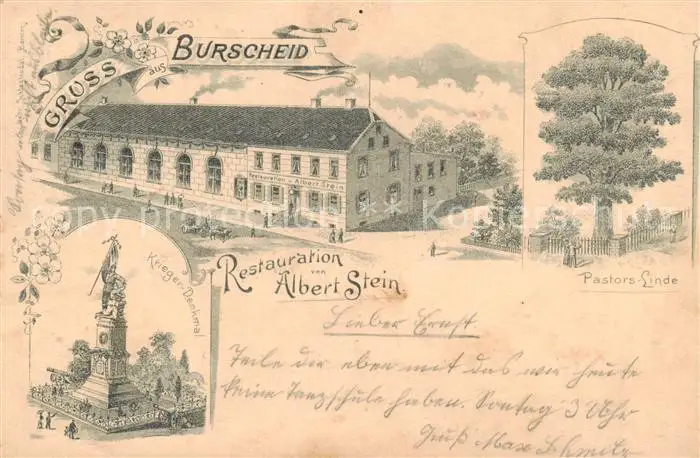 GRUSS aus BURSCHEID
Restauration v. Albert Stein
Restauration
von
Albert Stein.
Pastors-Linde
Krieger-Denkmal
copyright
Lieber Ernst
Teile dir eben mit das wir heute
keine Tanzschule haben. Sontag 3 Uhr
Gruß Max Schmitz